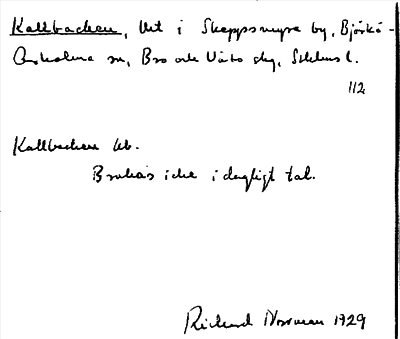 Kallbacken, lht i Skeppsmyra by, Björkö-
Arholma sn, Bro och Vätö skg, Sthlms l.
112
Kallbacken lht.
Brukas icke i dagligt tal.
Richard Norman 1929